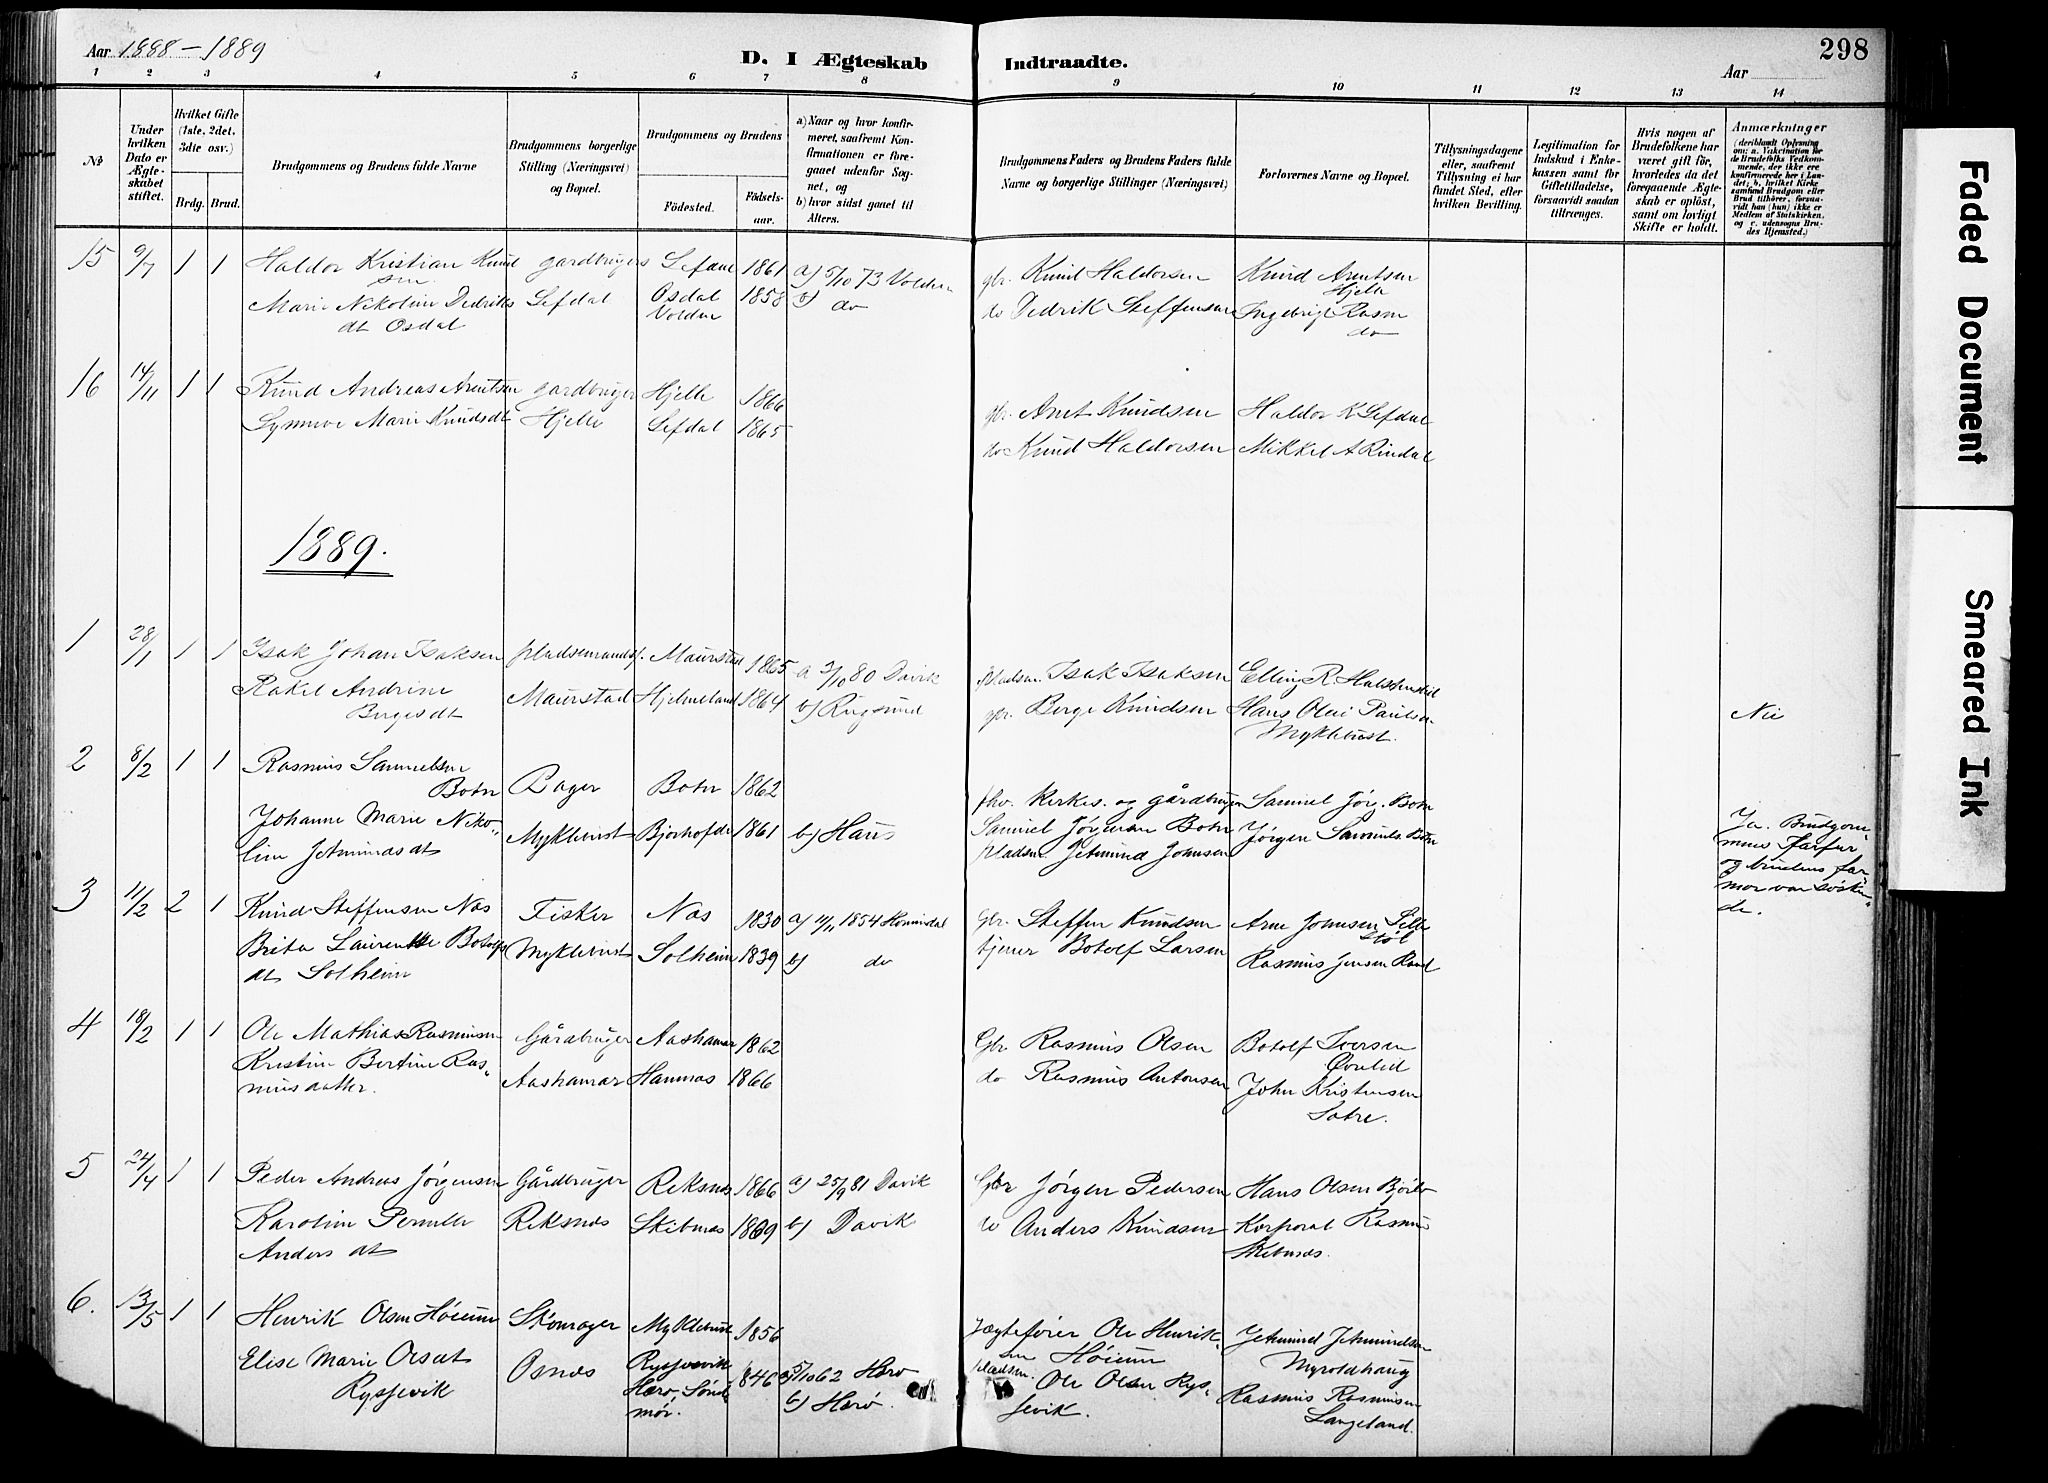 Aar 1888 – 1889
D. I Ægteskab Indtraadte.
Aar
298
1 2 3 4 5 6 7 8 9 10 11 12 13 14
№
Under hvilken Dato er Ægteskabet stiftet.
Hvilket Gifte (1ste, 2det, 3die osv.)
Brdg. Brud.
Brudgommens og Brudens fulde Navne
Brudgommens borgerlige Stilling (Næringsvei) og Bopæl.
Brudgommens og Brudens
Fødested. Fødselsaar.
a) Naar og hvor konfirmeret, saafremt Konfirmationen er foregaaet udenfor Sognet, og
b) hvor sidst gaaet til Alters.
Brudgommens Faders og Brudens Faders fulde Navne og borgerlige Stillinger (Næringsvei)
Forlovernes Navne og Bopæl.
Tillysningsdagene eller, saafremt Tillysning ei har fundet Sted, efter hvilken Bevilling.
Legitimation for Indskud i Enkekassen samt for Giftetilladelse, forsaavidt saadan tiltrænges.
Hvis nogen af Brudefolkene har været gift før, hvorledes da det foregaaende Ægteskab er opløst, samt om lovligt Skifte er holdt.
Anmærkninger (deriblandt Oplysning om: a. Vakcination for de Brudefolks Vedkommende, der ikke ere konfirmerede her i Landet; b. hvilket Kirkesamfund Brudgom eller Brud tilhører, forsaavidt han (hun) ikke er Medlem af Statskirken, og c. udensogns Brudes Hjemsted.)
15 9/7 1 1 Haldor Kristian Knudsen gardbruger Lefdal 1861 a) 5/10 73 Volden gbr. Knud Haldorsen Knud Arentsen Hjelle
Marie Nikoline Dedriksdt Osdal Lefdal Osdal Volden 1858 b) do do Dedrik Steffensen Ingebrigt Rasm do
16 14/11 1 1 Knud Andreas Arentsen gardbruger Hjelle 1866 gbr. Arnt Knudsen Haldor K Lefdal
Synneve Marie Knudsdt Hjelle Lefdal 1865 do Knud Haldorsen Mikkel A Rindal
1889.
1 28/1 1 1 Isak Johan Isaksen pladsemands. Maurstad 1865 a 3/10 80 Davik pladsm. Isak Isaksen Elling R
Rakel Andrine Bergesdt Maurstad Hjelmeland 1864 b) Rugsund gbr. Berge Knudsen Hans Olai Paulsen Myklebust. Nei
2 8/2 1 1 Rasmus Samuelsen Botn Bager Botn 1862 fhv. Kirkes. og gårdbruger Samuel Jør. Botn
Johanne Marie Nikoline Jetmundsdt Myklebust 1861 b) Haus Samuel Jørgensen Botn Jørgen Samuels. Botn
pladsm. Jetmund Johnsen
Ja. Brudgommens farfar og brudens farmor var søskende.
3 11/2 2 1 Knud Steffensen Nos Fisker Nos 1830 a) 11/11 1854 Hornindal Gbr. Steffen Knudsen Arne Johnsen
Brita Laurentse Botolfsdt Solheim Myklebust Solheim 1839 b) do tjener Botolf Larsen Rasmus Jensen Rand
4 18/2 1 1 Ole Mathias Rasmussen Gårdbruger Aashamar 1862 Gbr Rasmus Olsen Botolf Iversen Qvalid
Kristine Bertine Rasmusdatter. Aashamar Hamnas 1866 do Rasmus Antonsen John Kristensen Satre.
5 24/4 1 1 Peder Andreas Jørgensen Gårdbruger Reksnes 1866 a) 25/9 81 Davik Gbr Jørgen Pedersen Hans Olsen
Karoline Pernille Anders dt Reksnes Skibnes 1869 b) Davik do Anders Knudsen Korporal Rasmus Skibnes.
6. 13/5 1 1 Henrik Olsen Høieim Skomager Myklebust 1856 Jægtefører Ole Henriksen Høieim Jetmund Jetmundsen Myroldhaug
Elise Marie Olsdt Rysjevik Osnes Rysjevik Herø, Søndmør. 1846 a) 5/10 62 Herø b) Herø. pladsm. Ole Olsen Rysjevik. Rasmus Rasmussen Langeland.
Faded Document
Smeared Ink